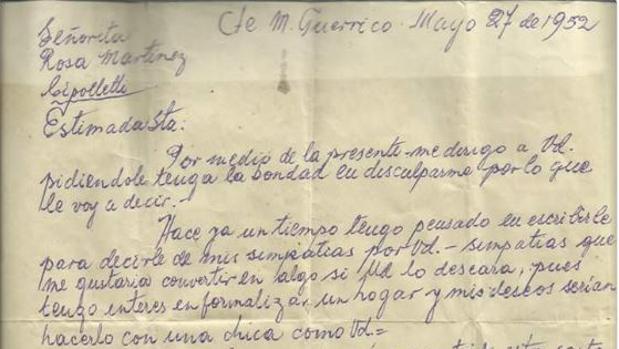 Cte M. Guerrico. Mayo 27 de 1952
Señorita
Rosa Martinez
Cipolletti
Estimada Sta:
Por medio de la presente me dirijo a Vd.
pidiendole tenga la bondad en disculparme por lo que
le voy a decir.-
Hace ya un tiempo tengo pensado en escribirle
para decirle de mis simpatias por Vd.- simpatias que
me gustaria convertir en algo si Ud lo deseara, pues
tengo interes en formalizar un hogar y mis deseos serian
hacerlo con una chica como Vd=